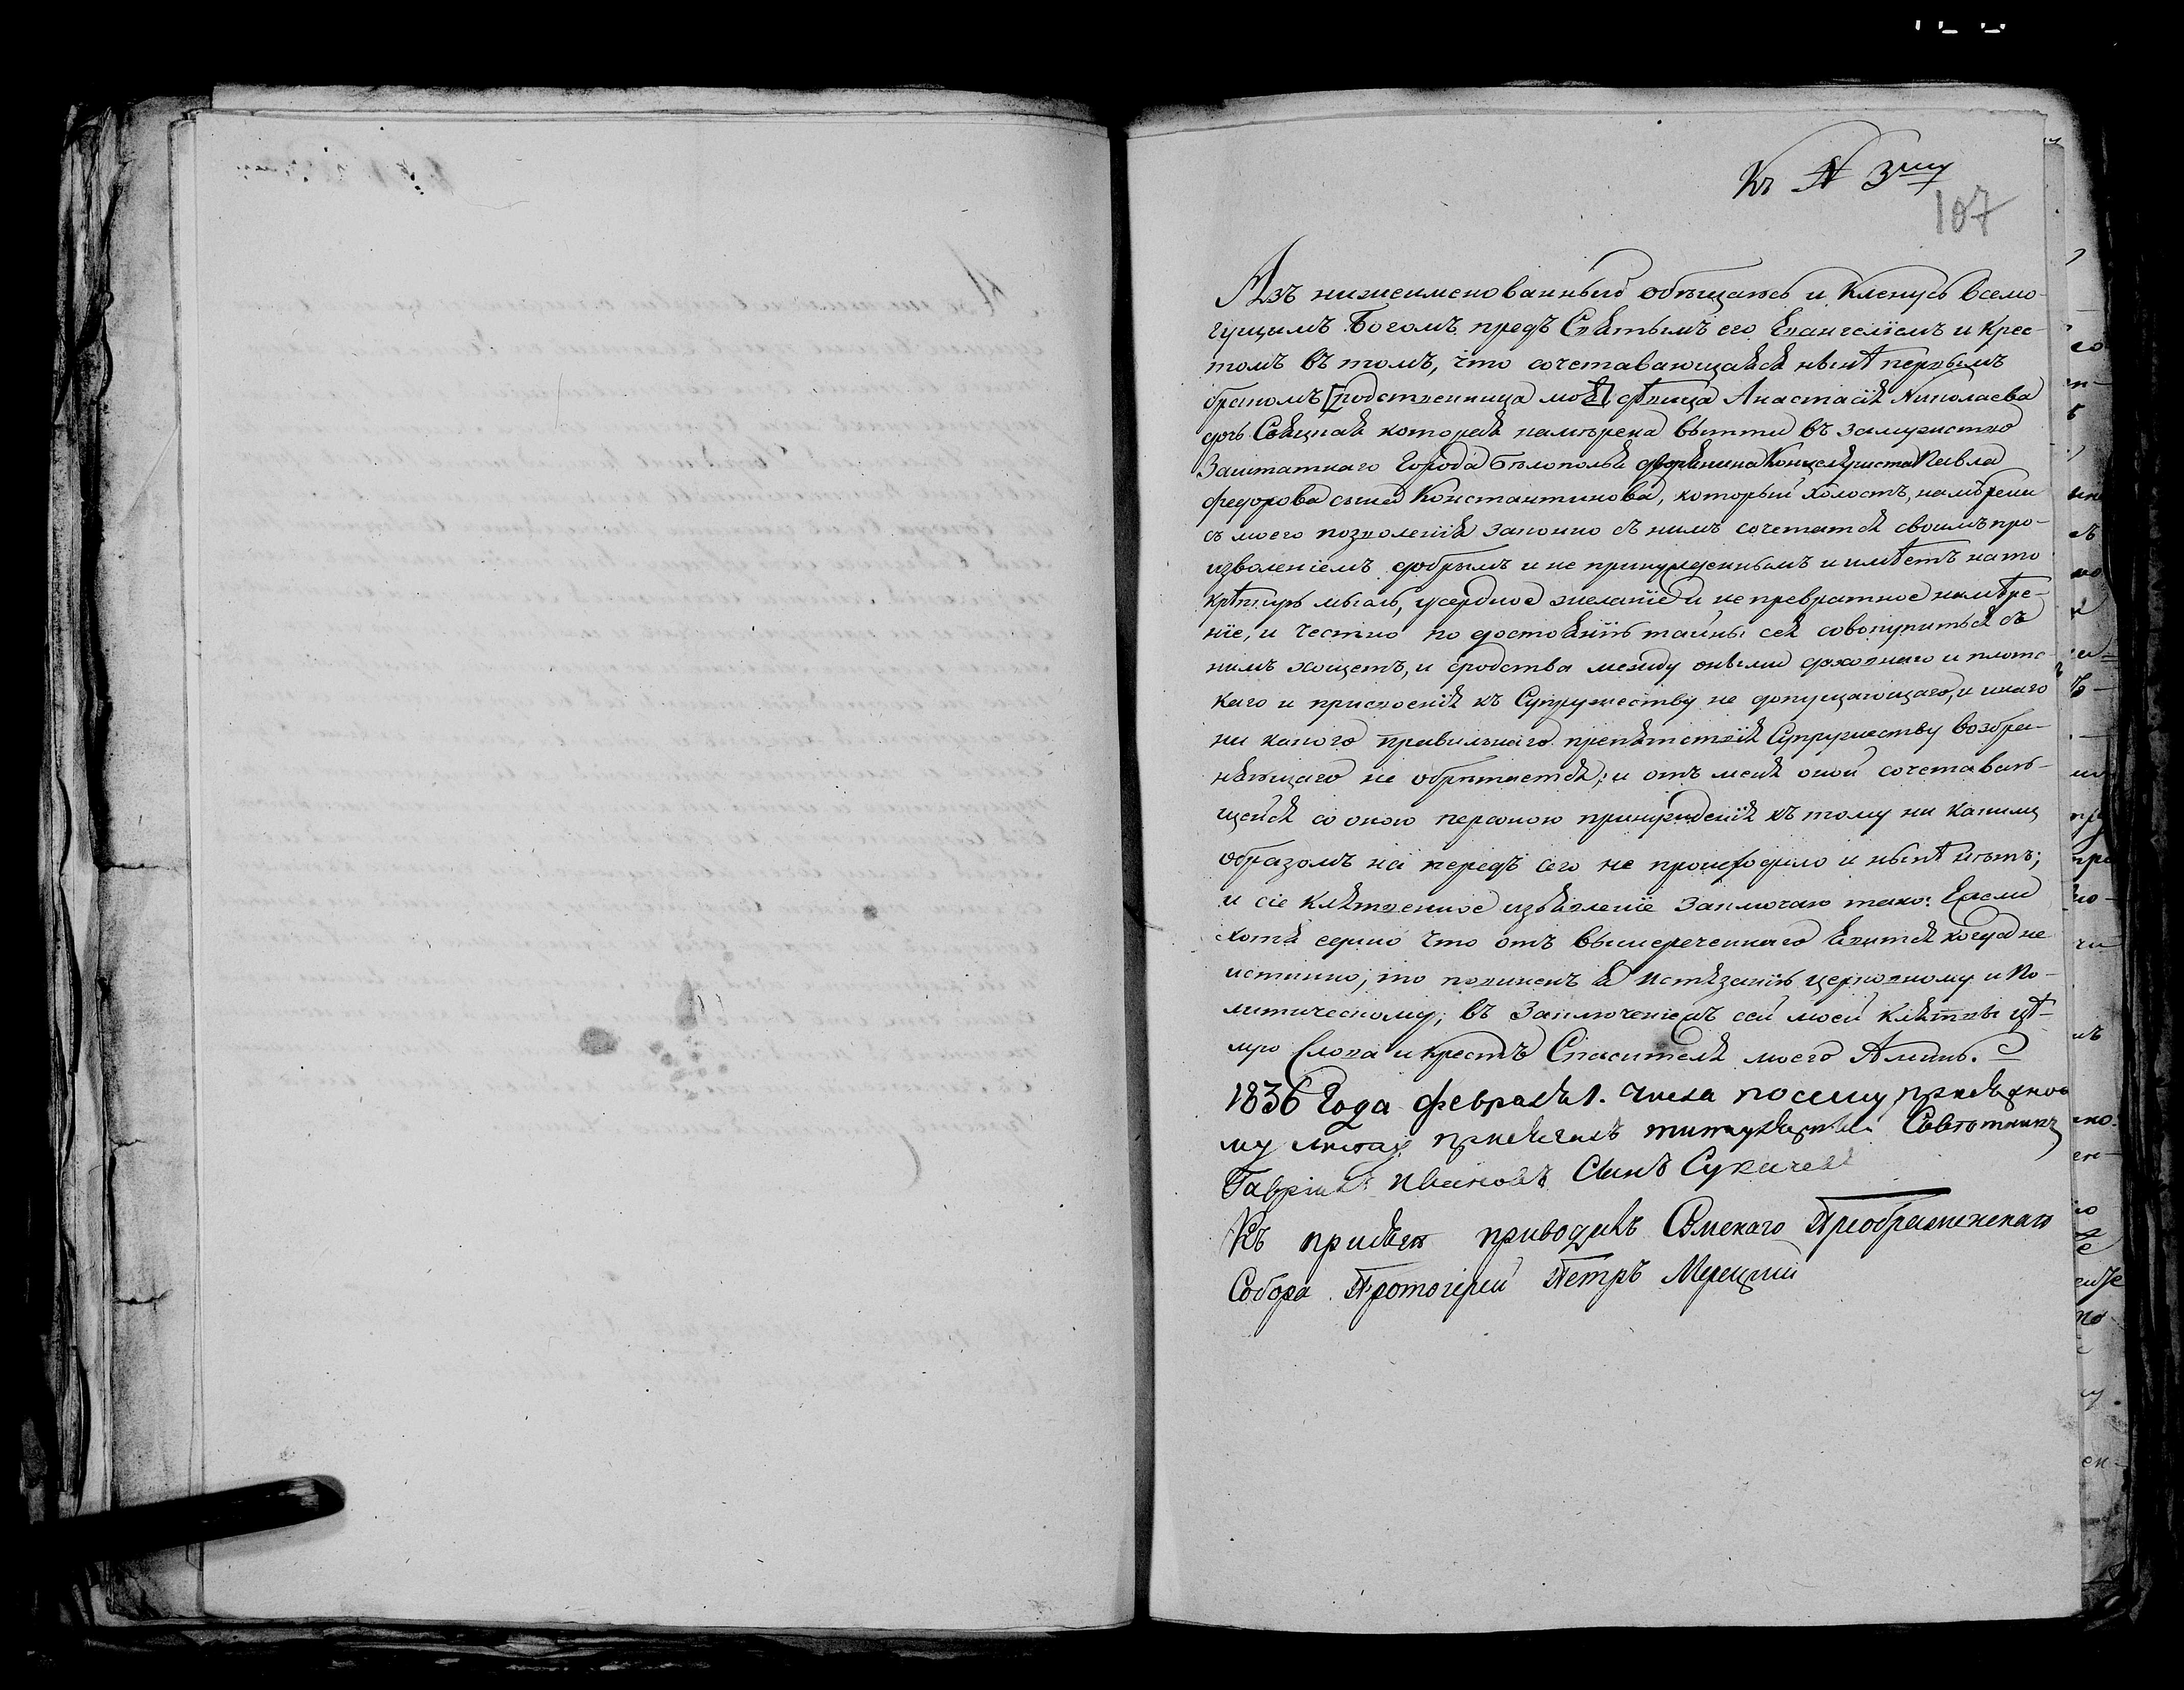 Къ № 3му
107
Азъ нижеименованный обѣщаюсь и Кленусь Всемо-
гущимъ Богомъ предъ Святымъ его Евангелїемъ и Крес-
томъ въ томъ, что сочетавающаяся нынѣ первымъ
бракомъ [родственница моя] дѣвица Анастасія Николаева
дочь которая намѣрена вытти въ замужство
Заштатнаго Города Бѣлополья дворянина Канцеляриста Павла
Федорова сына Константинова, который холостъ, намѣрена
съ моего позволенія законно съ нимъ сочетатся своимъ про-
изволеніемъ добрымъ и не принужденнымъ и имѣетъ на то
крѣпкую мысль, усердное желаніе и не превратное намѣре-
ніе, и честно по достоянію тайны сея совокупиться съ
нимъ хощетъ, и сродства между оными духовнаго и плотс-
каго и присвоенія къ Супружеству не допущающаго, и инаго
ни какого правильнаго препятствія Супружеству возбра-
няющаго не обрѣтается; и отъ меня оной сочетаваю-
щейся со оною персоною принужденія къ тому ни какимъ
образомъ на передъ сего не происходило и нынѣ нѣтъ;
и сіе клятвенное изъявленіе Заключаю тако: Ежели
хотя едино что отъ вышереченнаго явится когда не
истинно, то повиненъ я истязанію церковному и По-
литическому; въ Заключеніемъ сей моей клятвы цѣ-
лую Слова и крестъ Спасителя моего Аминь.
1836 Года февраля 1. числа по сему присяжно
му листу присягалъ титулярный Совѣтникъ
Гавріилъ Ивановъ Сынъ Сукачевъ
Къ присягѣ приводилъ Сумскаго Преображенскаго
Собора Протоіерей Петръ